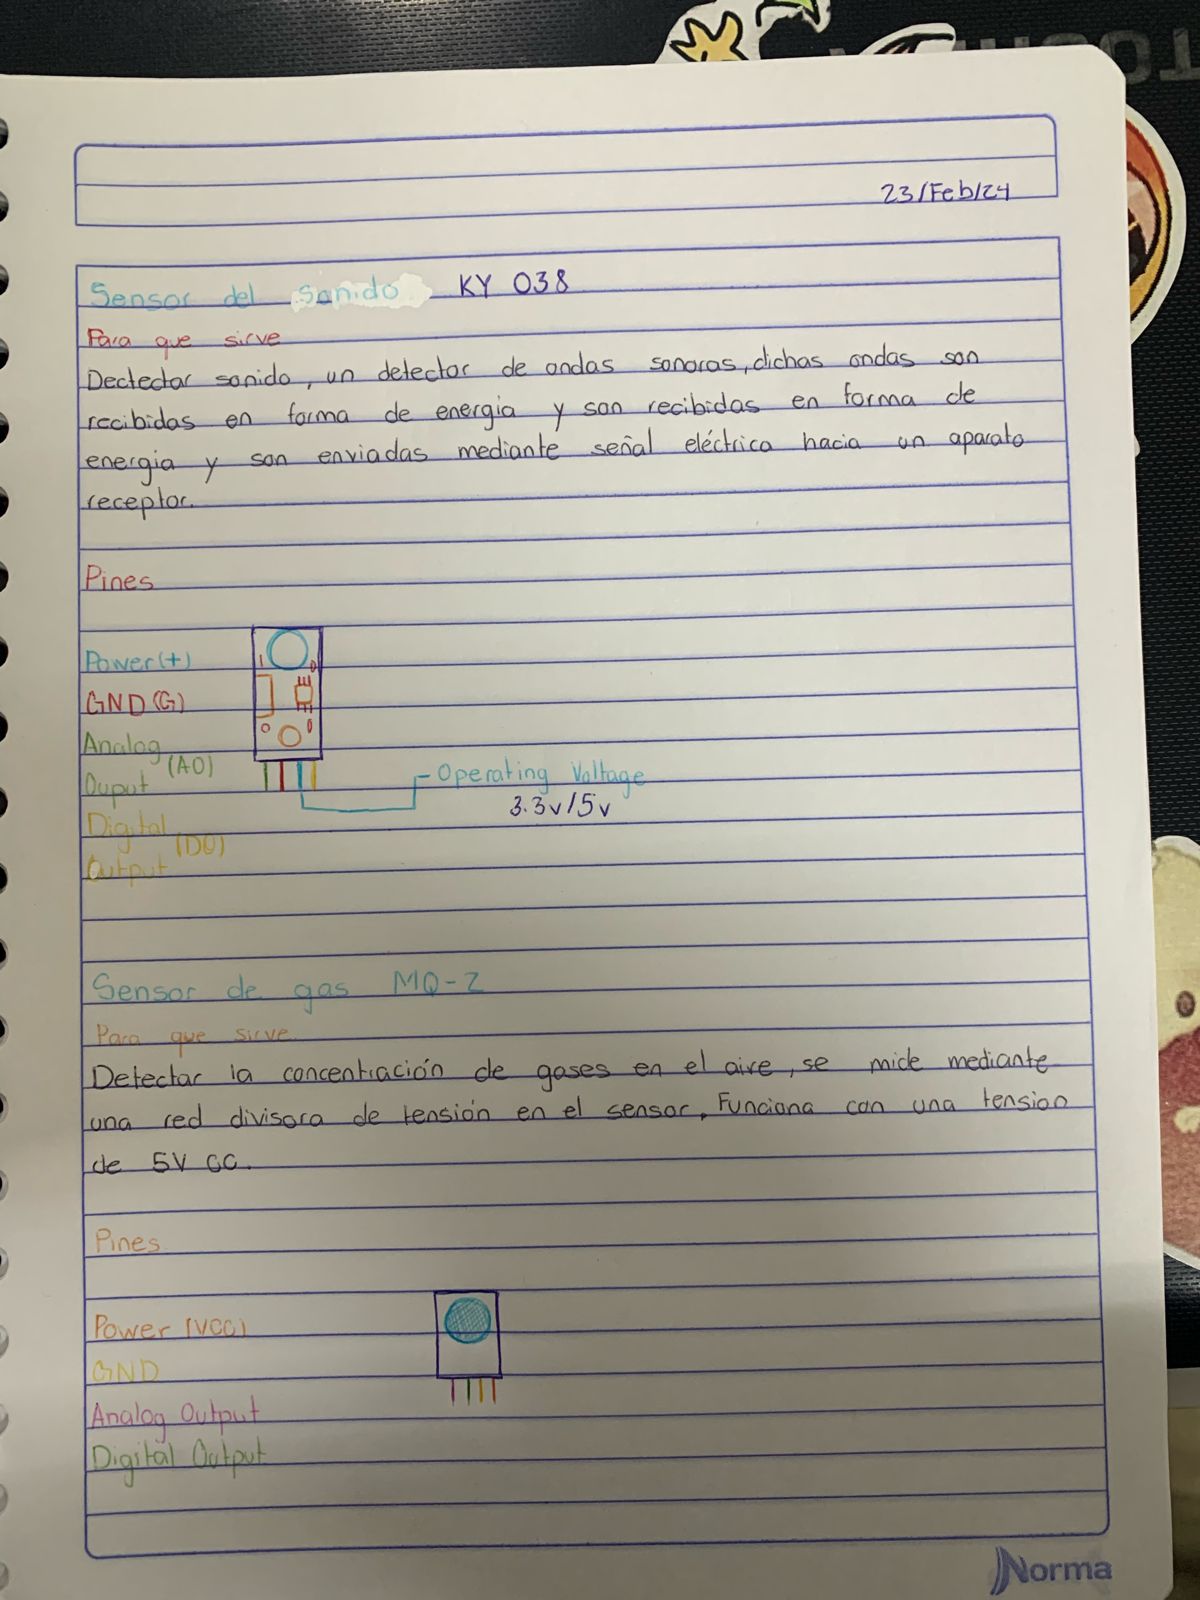 23/Feb/24
Sensor del sonido KY 038
Para que sirve
Dectectar sonido, un detector de ondas sonoras, dichas ondas son
recibidas en forma de energia y son recibidas en forma de
energia y son enviadas mediante señal eléctrica hacia un aparato
receptor.
Pines
Power(+)
GND (G)
Analog (AO)
Ouput
Operating Voltage
3.3v/5v
Digital (DO)
Output
Sensor de gas MQ-2
Para que sirve
Detectar la concentración de gases en el aire, se mide mediante
una red divisora de tensión en el sensor, Funciona con una tension
de 5V CC.
Pines
Power (VCC)
GND
Analog Output
Digital Output
Norma